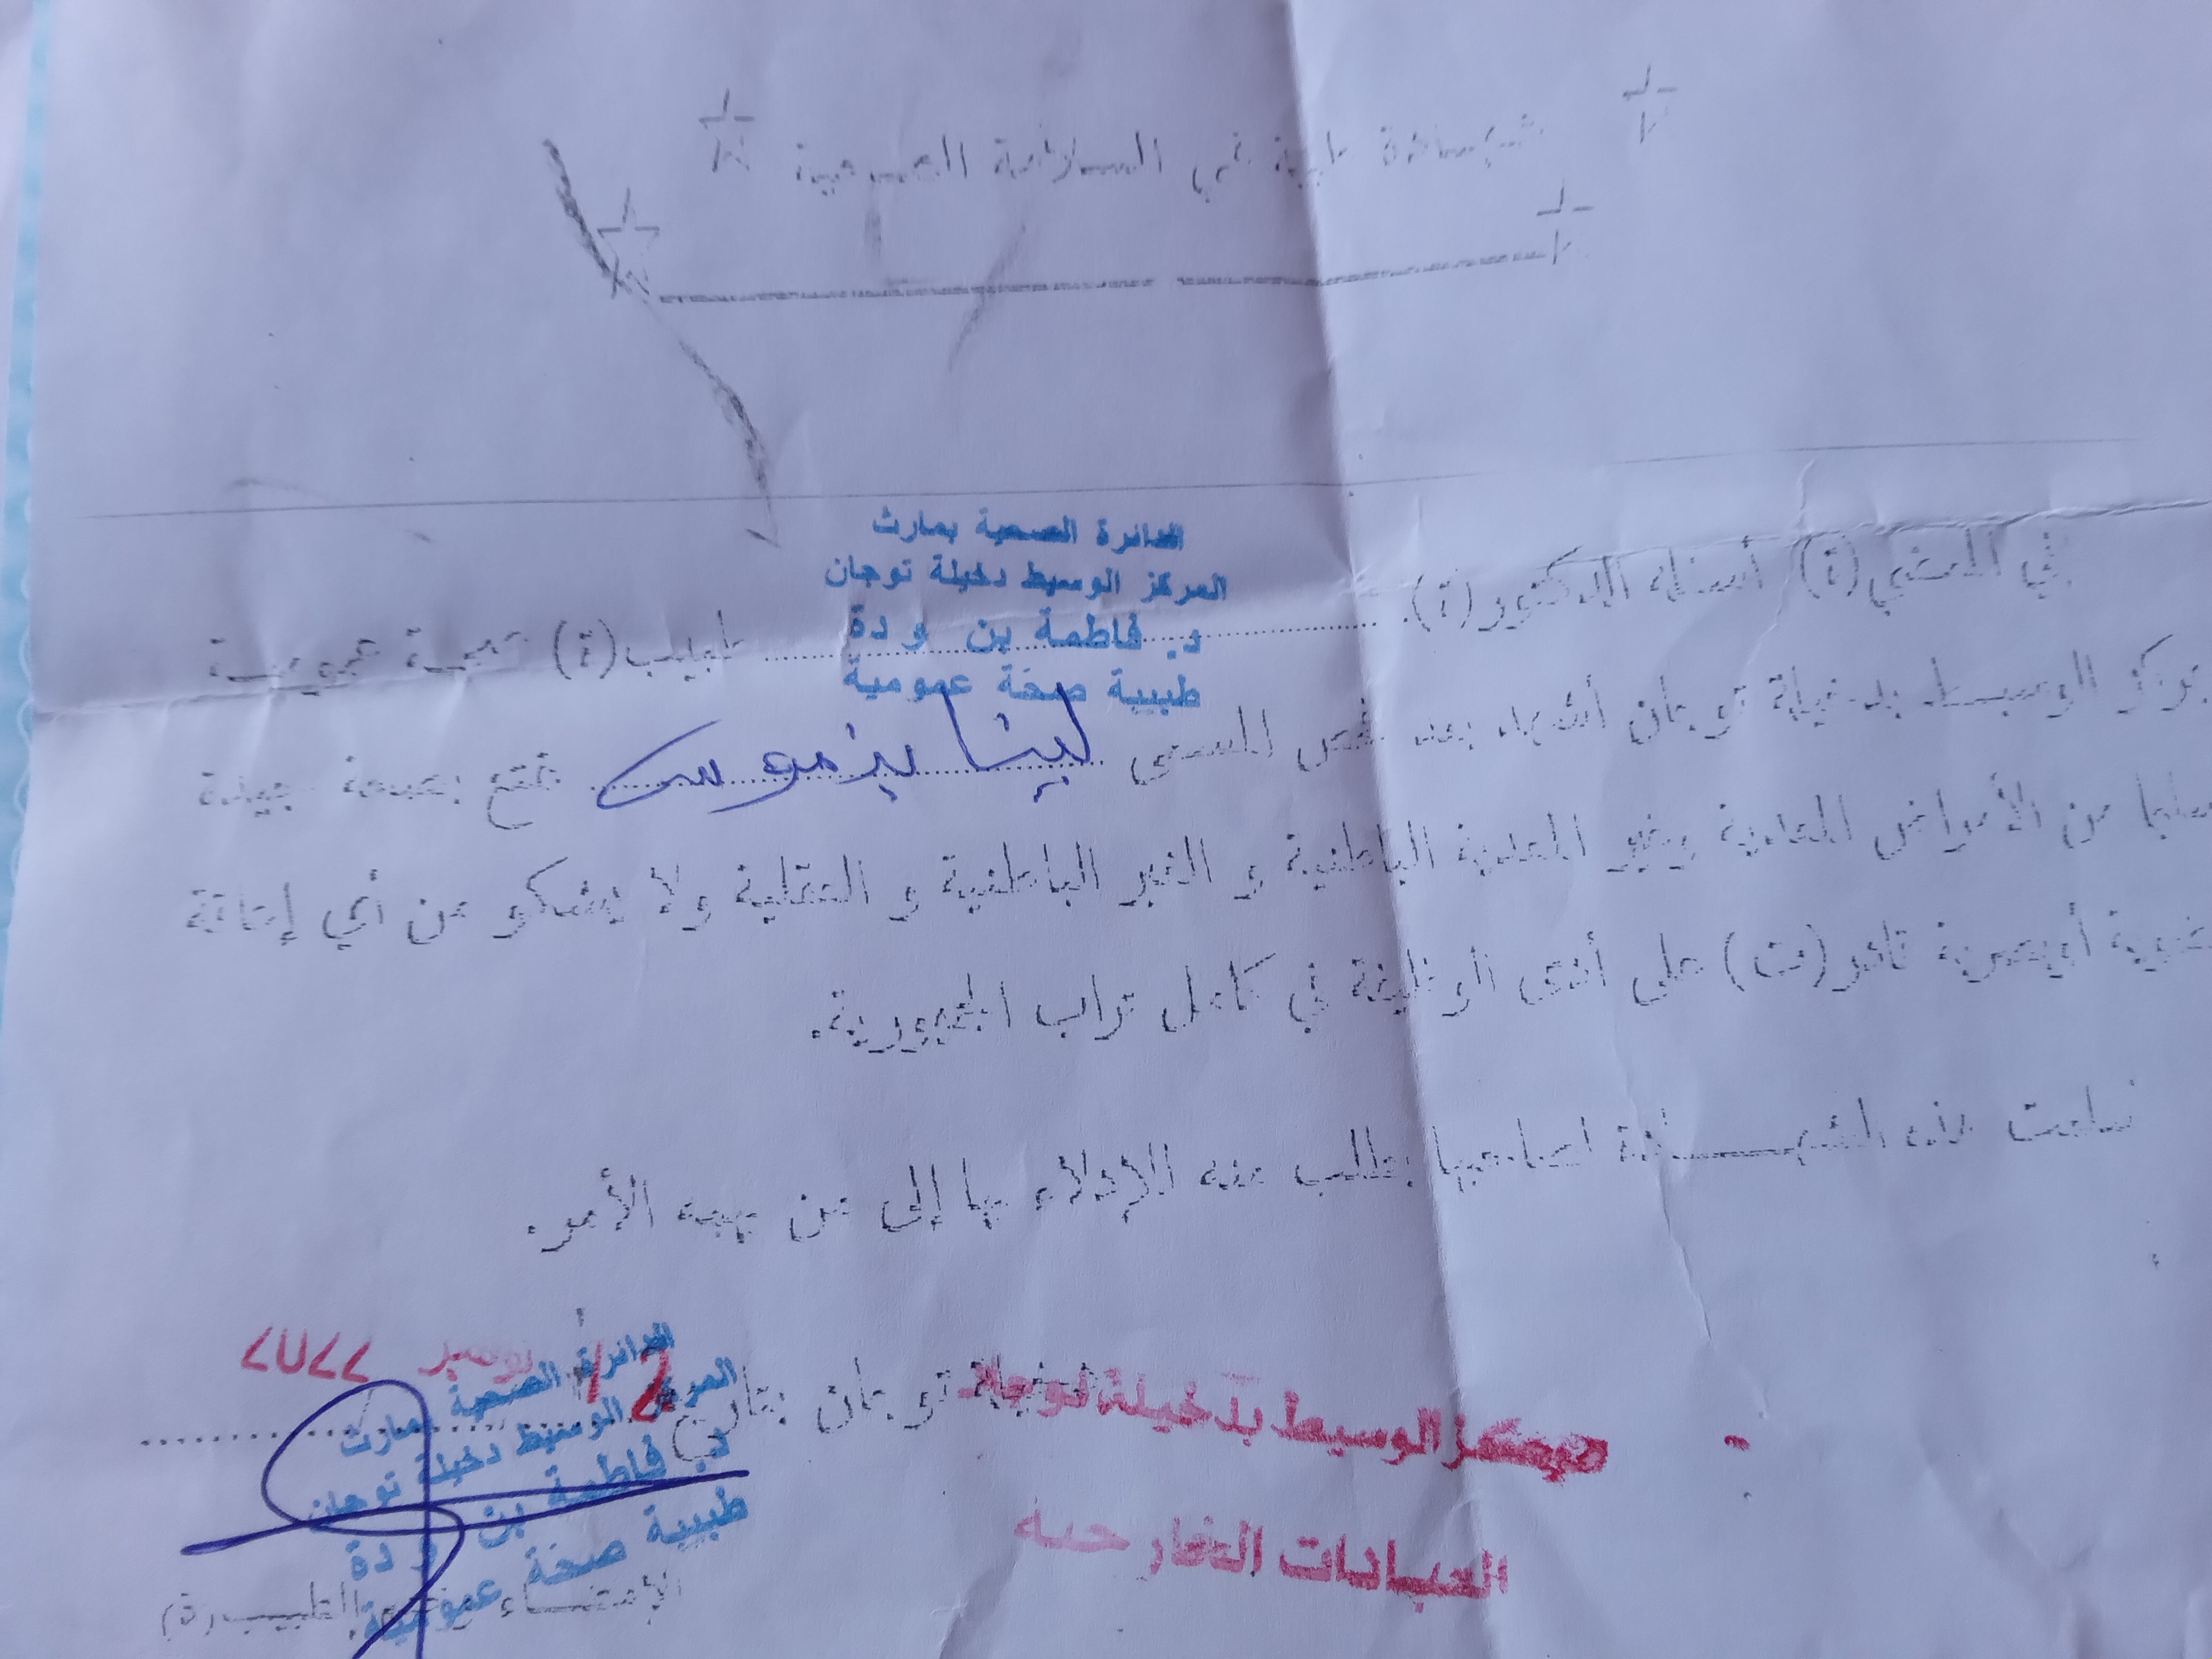 شهادة طبية في السلامة الصحية
الدائرة الصحية بمارث
المركز الوسيط دخيلة توجان
د. فاطمة بن ودة
طبيبة صحة عمومية
إني الممضي(ة) أسفله الدكتور(ة). طبيب(ة) صحة عمومية
بمركز الوسيط بدخيلة توجان أشهد بعد فحص المسمى لينا بنموسى تتمتع بصحة جيدة
سليما من الأمراض المعدية وغير المعدية الباطنية و الغير الباطنية و العقلية ولا يشكو من أي إعاقة
عضوية أوبصرية قادر(ت) على أدى الوظيفة في كامل تراب الجمهورية.
سلمت هذه الشهـــــادة لصاحبها بطلب منه للإدلاء بها إلى من يهمه الأمر.
توجان بتاريخ 12
مركز الوسيط بدخيلة توجان
العيادات الخارجية
الدائرة الصحية بمارث
المركز الوسيط دخيلة توجان
د. فاطمة بن ودة
طبيبة صحة عمومية
الإمضـــاء الطبيب(ة)